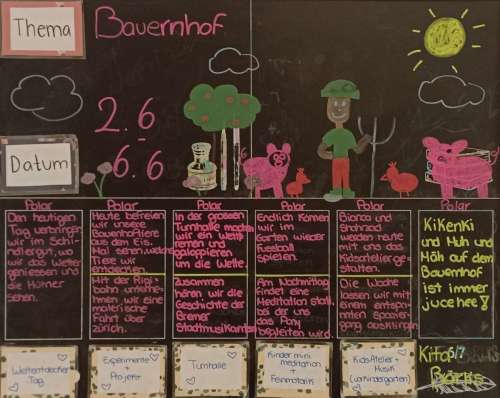 Thema
Bauernhof
2.6
-
6.6
Datum
Polar
Den heutigen
Tag verbringen
wir im Schi-
ndlergut, wo
wir das Wetter
geniessen und
die Hüner
sehen.
Polar
Heute befreien
wir unsere
Bauernhoftiere
aus dem Eis.
Mal sehen, welche
Tiere wir
entdecken.
Mit der Rigi
bahn unterne-
hmen wir eine
malerische
Fahrt über
Zürich.
Polar
In der grossen
Turnhalle machen
wir ein Wett-
rennen und
galoppieren
um die Wette.
Zusammen
hören wir die
Geschichte der
Bremer
Stadtmusikanten
Polar
Endlich können
wir im
Garten wieder
Fussball
spielen.
Am Nachmittag
findet eine
Meditation statt,
bei der uns
das Pony
begleiten wird.
Polar
Bianca und
Shahnaad
werden heute
mit uns das
Kidsatelier ge-
stalten.
Die Woche
lassen wir mit
einem entspan-
nten Spazier-
gang ausklingen
Polar
Kikeriki
und Muh und
Mäh auf dem
Bauernhof
ist immer
juchee!
Weltentdecker
Tag
Experimente
+
Projekt
Turnhalle
Kinder mini
meditation
+
Feinmotorik
KidsAtelier +
Musik
(vorkindergarten)
Kita